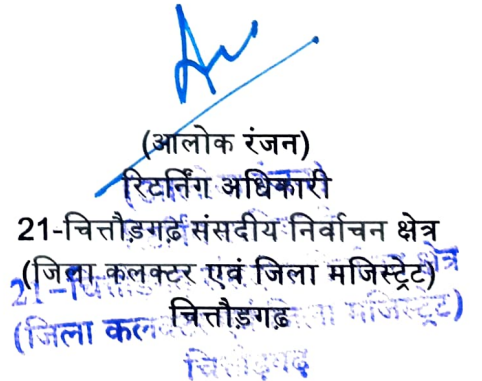 (आलोक रंजन)
रिटर्निंग अधिकारी
21-चित्तौड़गढ़ संसदीय निर्वाचन क्षेत्र
(जिला कलक्टर एवं जिला मजिस्ट्रेट)
चित्तौड़गढ़
21-
क्षेत्र
(जिला कलक्टर जिला मजिस्ट्रेट)
चित्तौड़गढ़